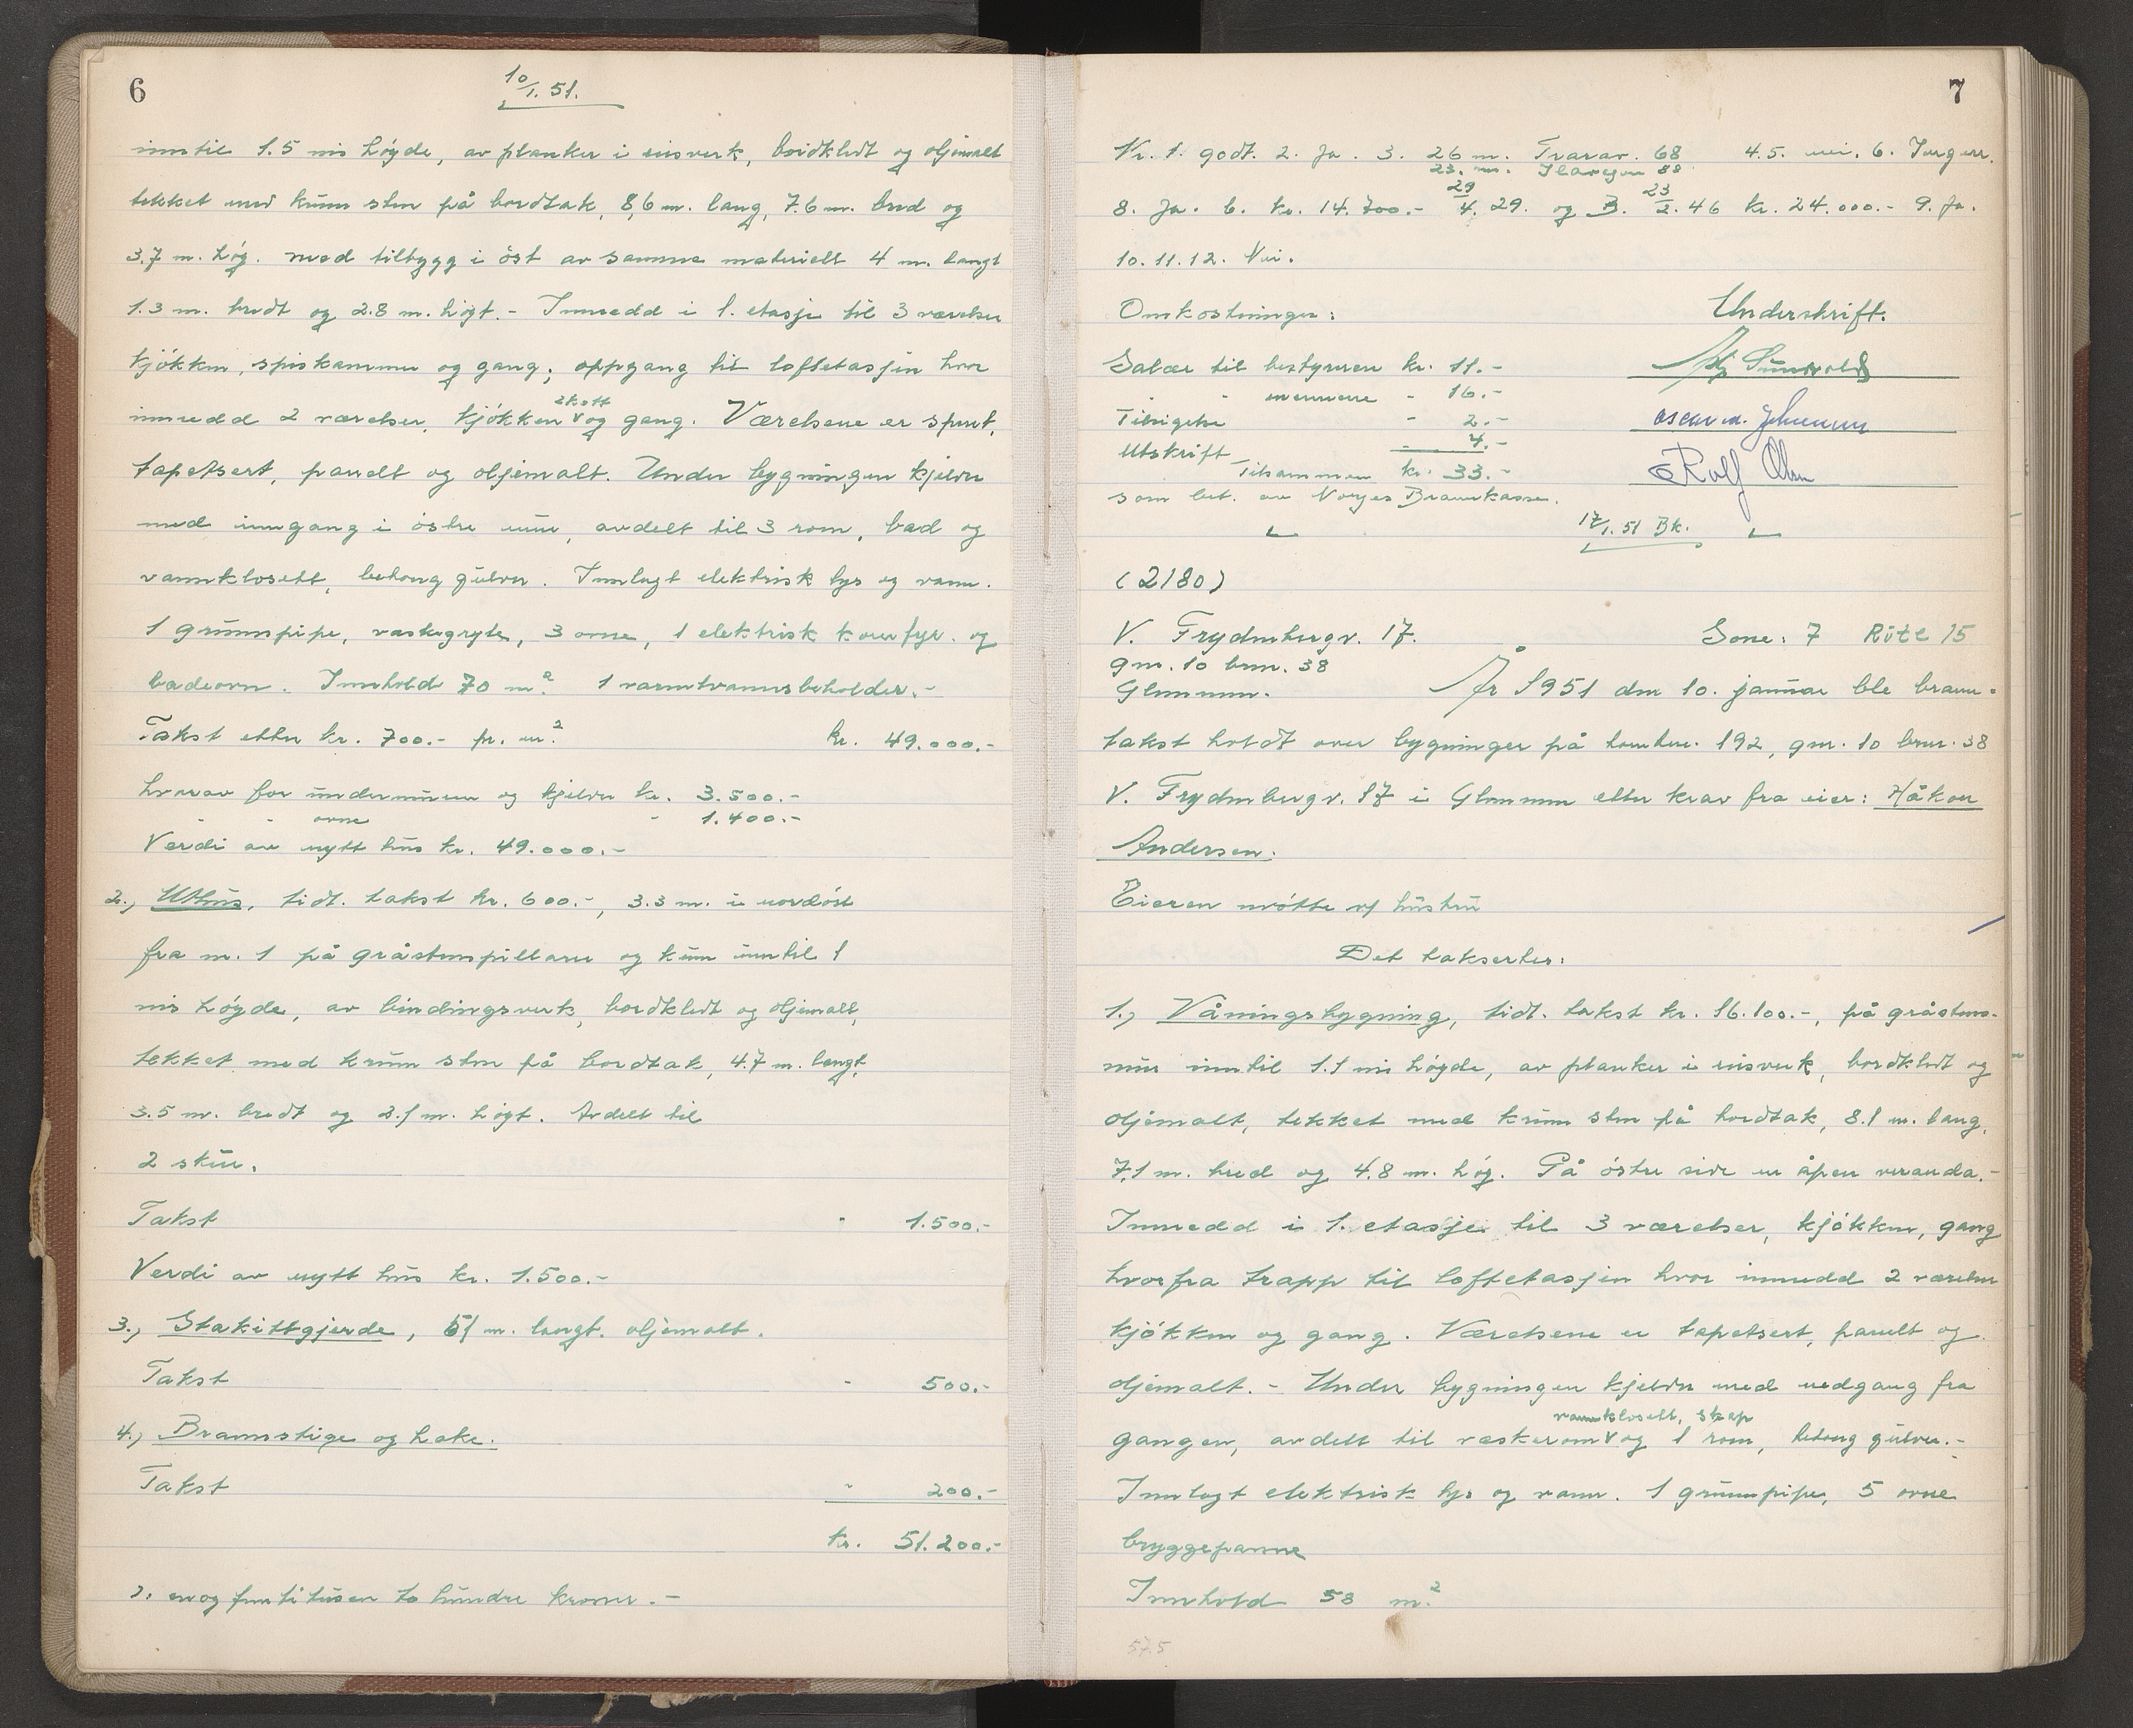 6
10/1. 51.
inntil 1.5 ms høyde, av planker i reisverk, bordkledt og oljemalt
tekket med krum sten på bordtak, 8,6 m. lang, 7.6 m. bred og
3.7 m. høg. med tilbygg i öst av samme materiell 4 m. langt
1.3 m. bredt og 2.8 m. högt. - Innredd i 1. etasje til 3 værelser
kjökken, spiskammer og gang; oppgang til loftetasjen hvor
innredd 2 værelser, kjökken v og gang. Værelsene er spent,
2 kott
tapetsert, panelt og oljemalt. Under bygningen kjeller
med inngang i östre mur, avdelt til 3 rom, bad og
vannklosett, betong gulver. Innlagt elektrisk lys og vann.
1 grunnpipe, vaskegryte, 3 ovne, 1 elektrisk komfyr. og
badeovn. Innhold 70 m². 1 varmtvannsbeholder. -
Takst etter kr. 700.- pr. m². kr. 49.000.-
hvorav for undermuren og kjeller kr. 3.500.-
" " ovne " 1.400.-
Verdi av nytt hus kr. 49.000.-
2., Uthus, tidl. takst kr. 600.-, 3.3 m. i nordöst
fra nr. 1 på gråstenspillarer og kum inntil 1
ms höyde, av bindingsverk, bordkledt og oljemalt,
tekket med krum sten på bordtak, 4.7 m. langt,
3.5 m. bredt og 2.1 m. högt. Avdelt til
2 skur.
Takst " 1.500.-
Verdi av nytt hus kr. 1.500.-
3., Stakittgjerde, 51 m. langt. oljemalt.
Takst " 500.-
4., Brannstige og hake.
Takst " 200.-
kr. 51.200.-
ɔ: en og femti tusen to hundre kroner. -
7
Nr. 1. godt. 2. Ja. 3. 26 m. Trarav. 68 4.5. nei. 6. Ingen.
23. m. 88
8. Ja. b. kr. 14.700.- 29/4. 29. og B. 23/2. 46 kr. 24.000.- 9. Ja.
10. 11. 12. Nei.
Omkostninger: Underskrift.
Salær til bestyreren kr. 11.-
" " mennene " 16.-
Tilsigelse " 2.-
Utskrift " 4.-
Tilsammen kr. 33.- Rolf Olsen
som bet. av Norges Brannkasse.
17/1. 51 Bk.
(2180)
V. Frydenbergv. 17. Sone: 7 Rute 15
gnr. 10 bnr. 38
Glemmen. År 1951 den 10. januar ble brann-
takst holdt over bygninger på tomtenr. 192, gnr. 10 bnr. 38
V. Frydenbergv. 17 i Glemmen etter krav fra eier: Håkon
Andersen.
Eieren mötte v/ hustru
Det takserter:
1., Våningsbygning, tidl. takst kr. 16.100.-, på gråstens-
mur inntil 1.1 ms höyde, av planker i reisverk, bordkledt og
oljemalt, tekket med krum sten på bordtak, 8.1 m. lang,
7.1 m. bred og 4.8 m. höy. På östre side en åpen veranda. -
Innredd i 1. etasje til 3 værelser, kjökken, gang
hvorfra trapp til loftetasjen hvor innredd 2 værelser
kjökken og gang. Værelsene er tapetsert, panelt og
oljemalt. - Under bygningen kjeller med nedgang fra
vannklosett, skap
gangen, avdelt til vaskerom v og 1 rom, betong gulver. -
Innlagt elektrisk lys og vann. 1 grunnpipe, 5 ovne
bryggepanne
Innhold 58 m².
57.5